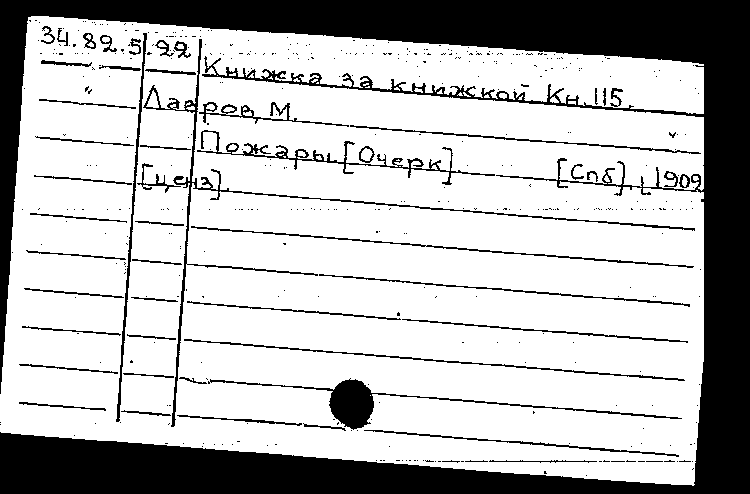 34.82.5.22
Книжка за книжкой Кн. 115.
" Лавров, М.
Пожары. [Очерк] [Спб]. [1909
[ценз].